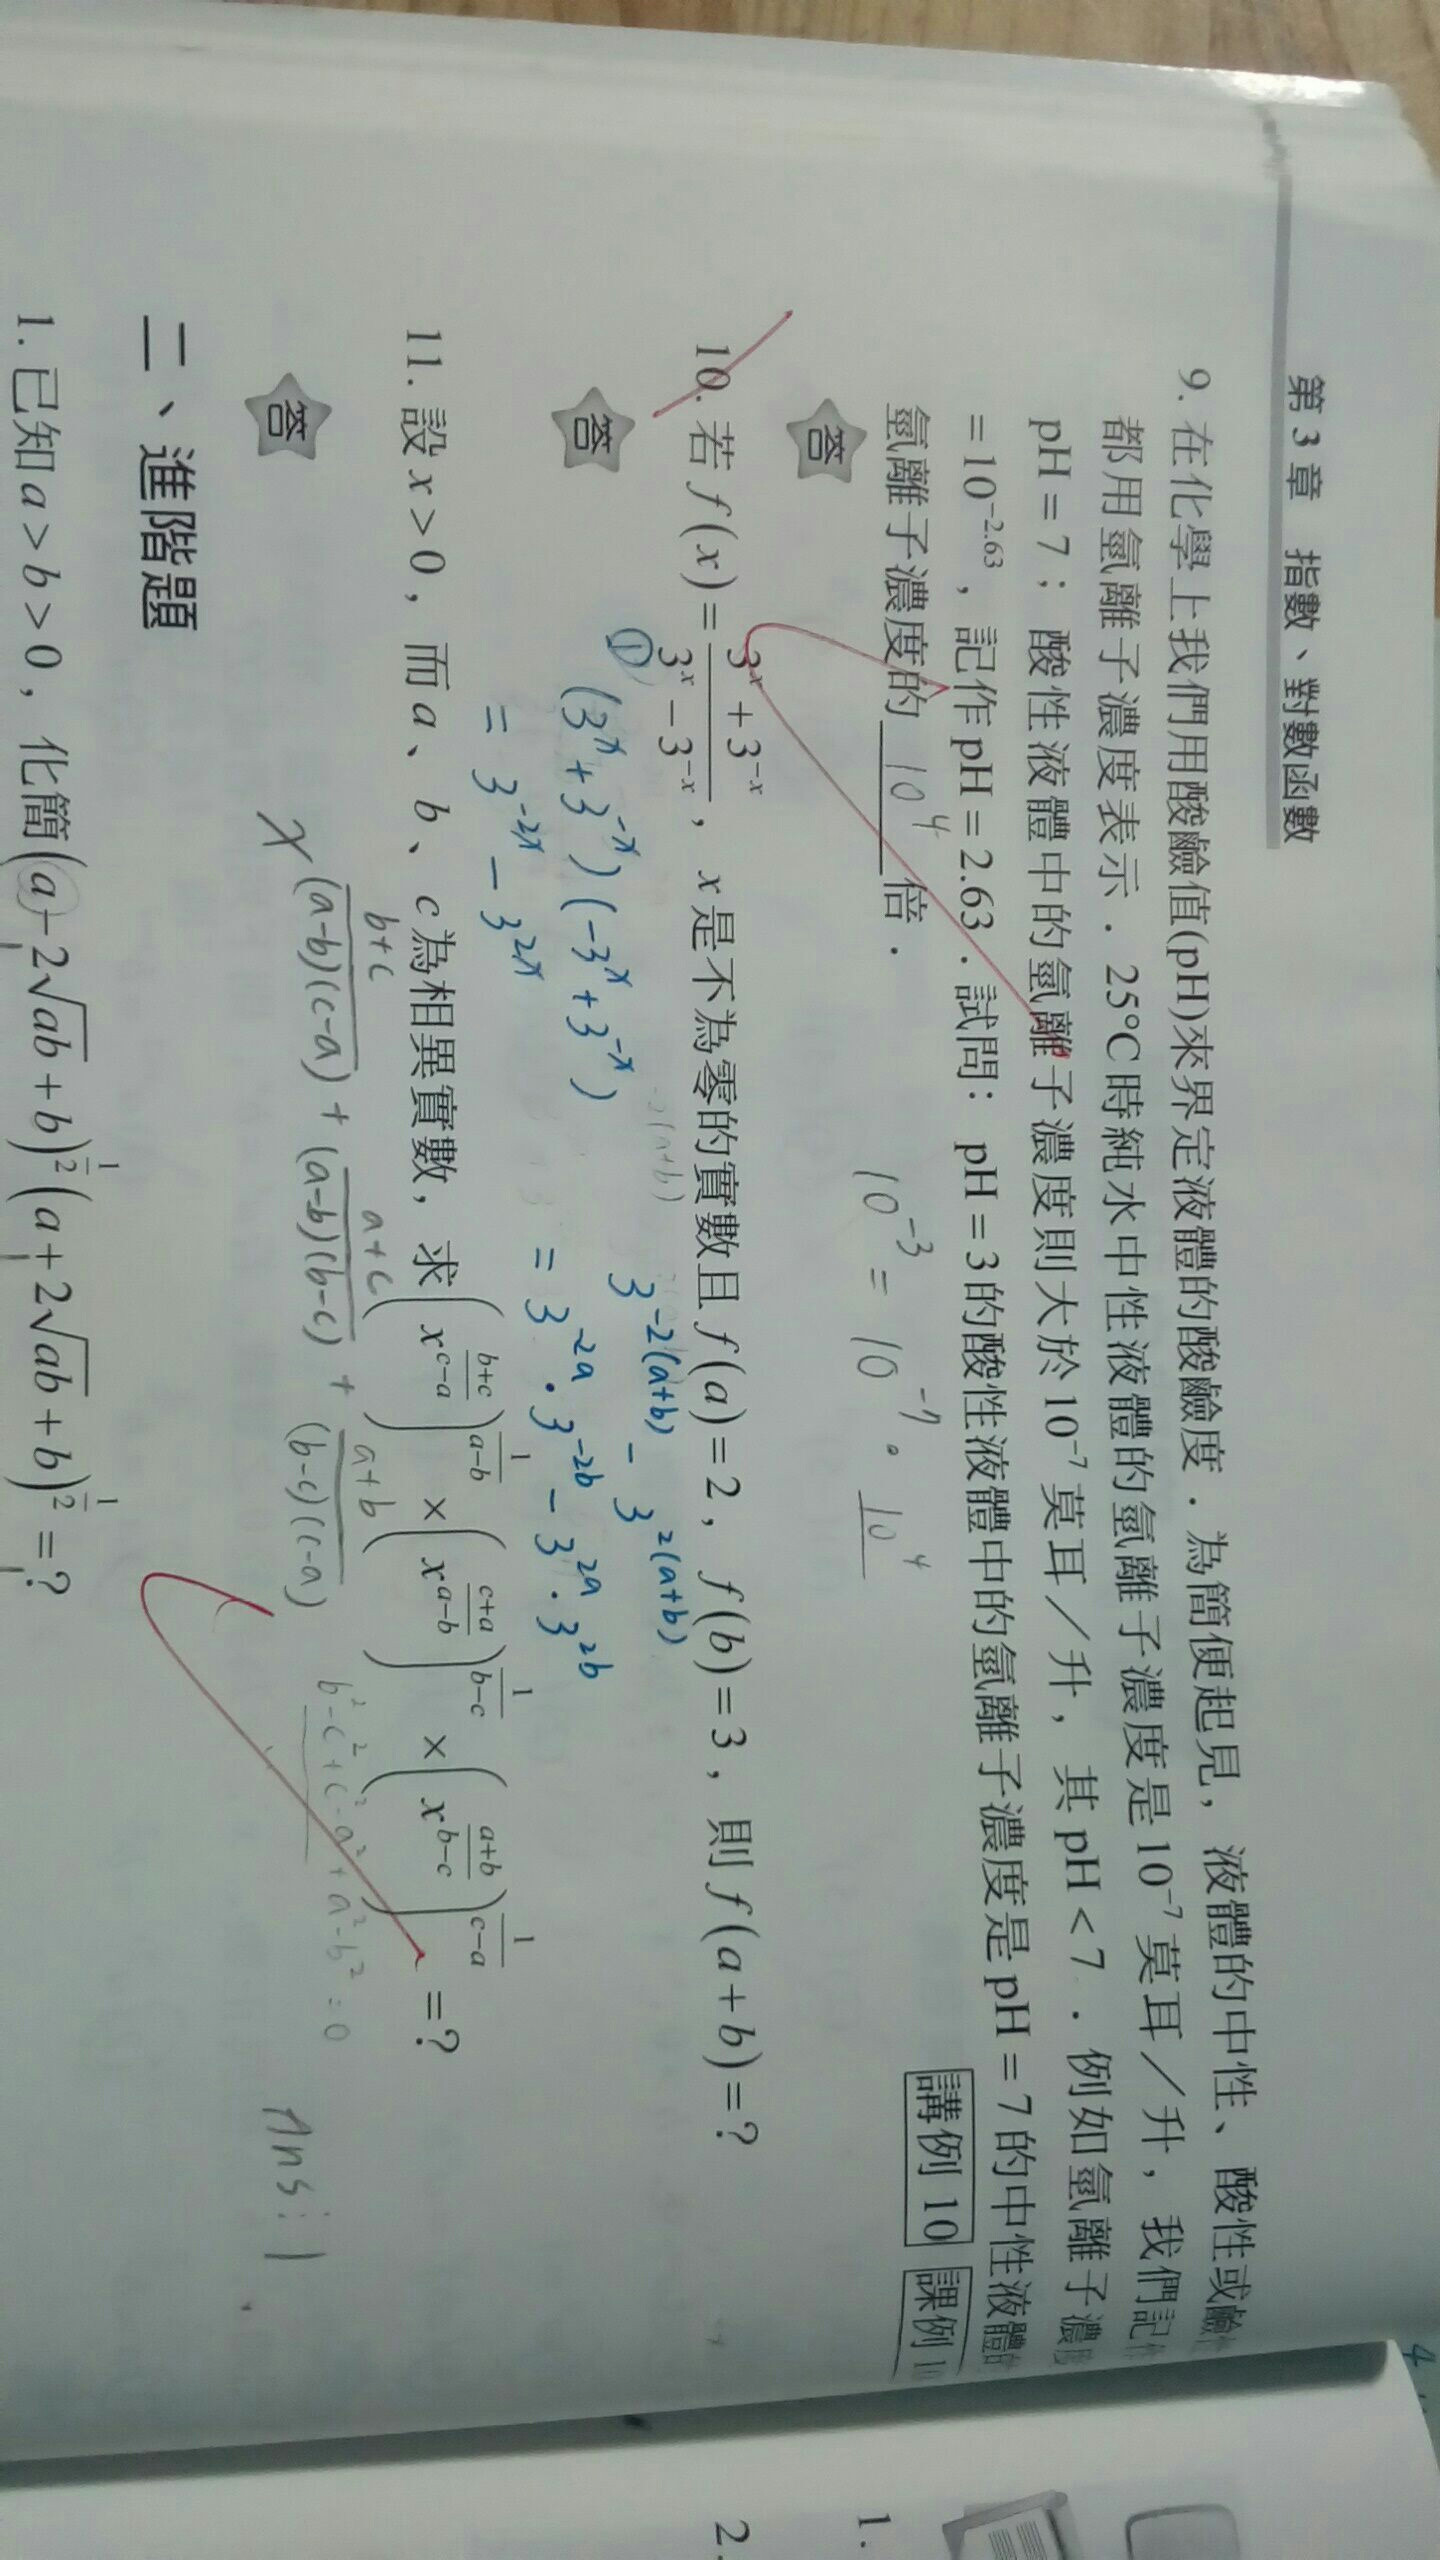 第 3 章 指數、對數函數
9. 在化學上我們用酸鹼值(pH)來界定液體的酸鹼度．為簡便起見，液體的中性、酸性或鹼
都用氫離子濃度表示．25°C時純水中性液體的氫離子濃度是10⁻⁷莫耳／升，我們記
pH = 7；酸性液體中的氫離子濃度則大於10⁻⁷莫耳／升，其pH < 7．例如氫離子濃
= 10⁻²·⁶³，記作pH = 2.63．試問：pH = 3的酸性液體中的氫離子濃度是pH = 7的中性液體
氫離子濃度的 10⁴ 倍．
講例 10 課例 10
答
10⁻³ = 10⁻⁷ · 10⁴
10. 若 f(x) = (3ˣ + 3⁻ˣ)/(3ˣ − 3⁻ˣ)，x是不為零的實數且 f(a) = 2，f(b) = 3，則 f(a + b) = ?
答
① 3^(-2(a+b)) − 3^(2(a+b))
(3ˣ + 3⁻ˣ)(−3ˣ + 3⁻ˣ) = 3^(-2a) · 3^(-2b) − 3^(2a) · 3^(2b)
= 3^(-2x) − 3^(2x)
11. 設 x > 0，而 a、b、c為相異實數，求 (x^((b+c)/(c−a)))^(1/(a−b)) × (x^((c+a)/(a−b)))^(1/(b−c)) × (x^((a+b)/(b−c)))^(1/(c−a)) = ?
答
x^((b+c)/((a−b)(c−a)) + (a+c)/((a−b)(b−c)) + (a+b)/((b−c)(c−a)))
b² − c² + c² − a² + a² − b² = 0
Ans: 1
二、進階題
1. 已知 a > b > 0，化簡(a − 2√ab + b)^(1/2) (a + 2√ab + b)^(1/2) = ?
1.
2.